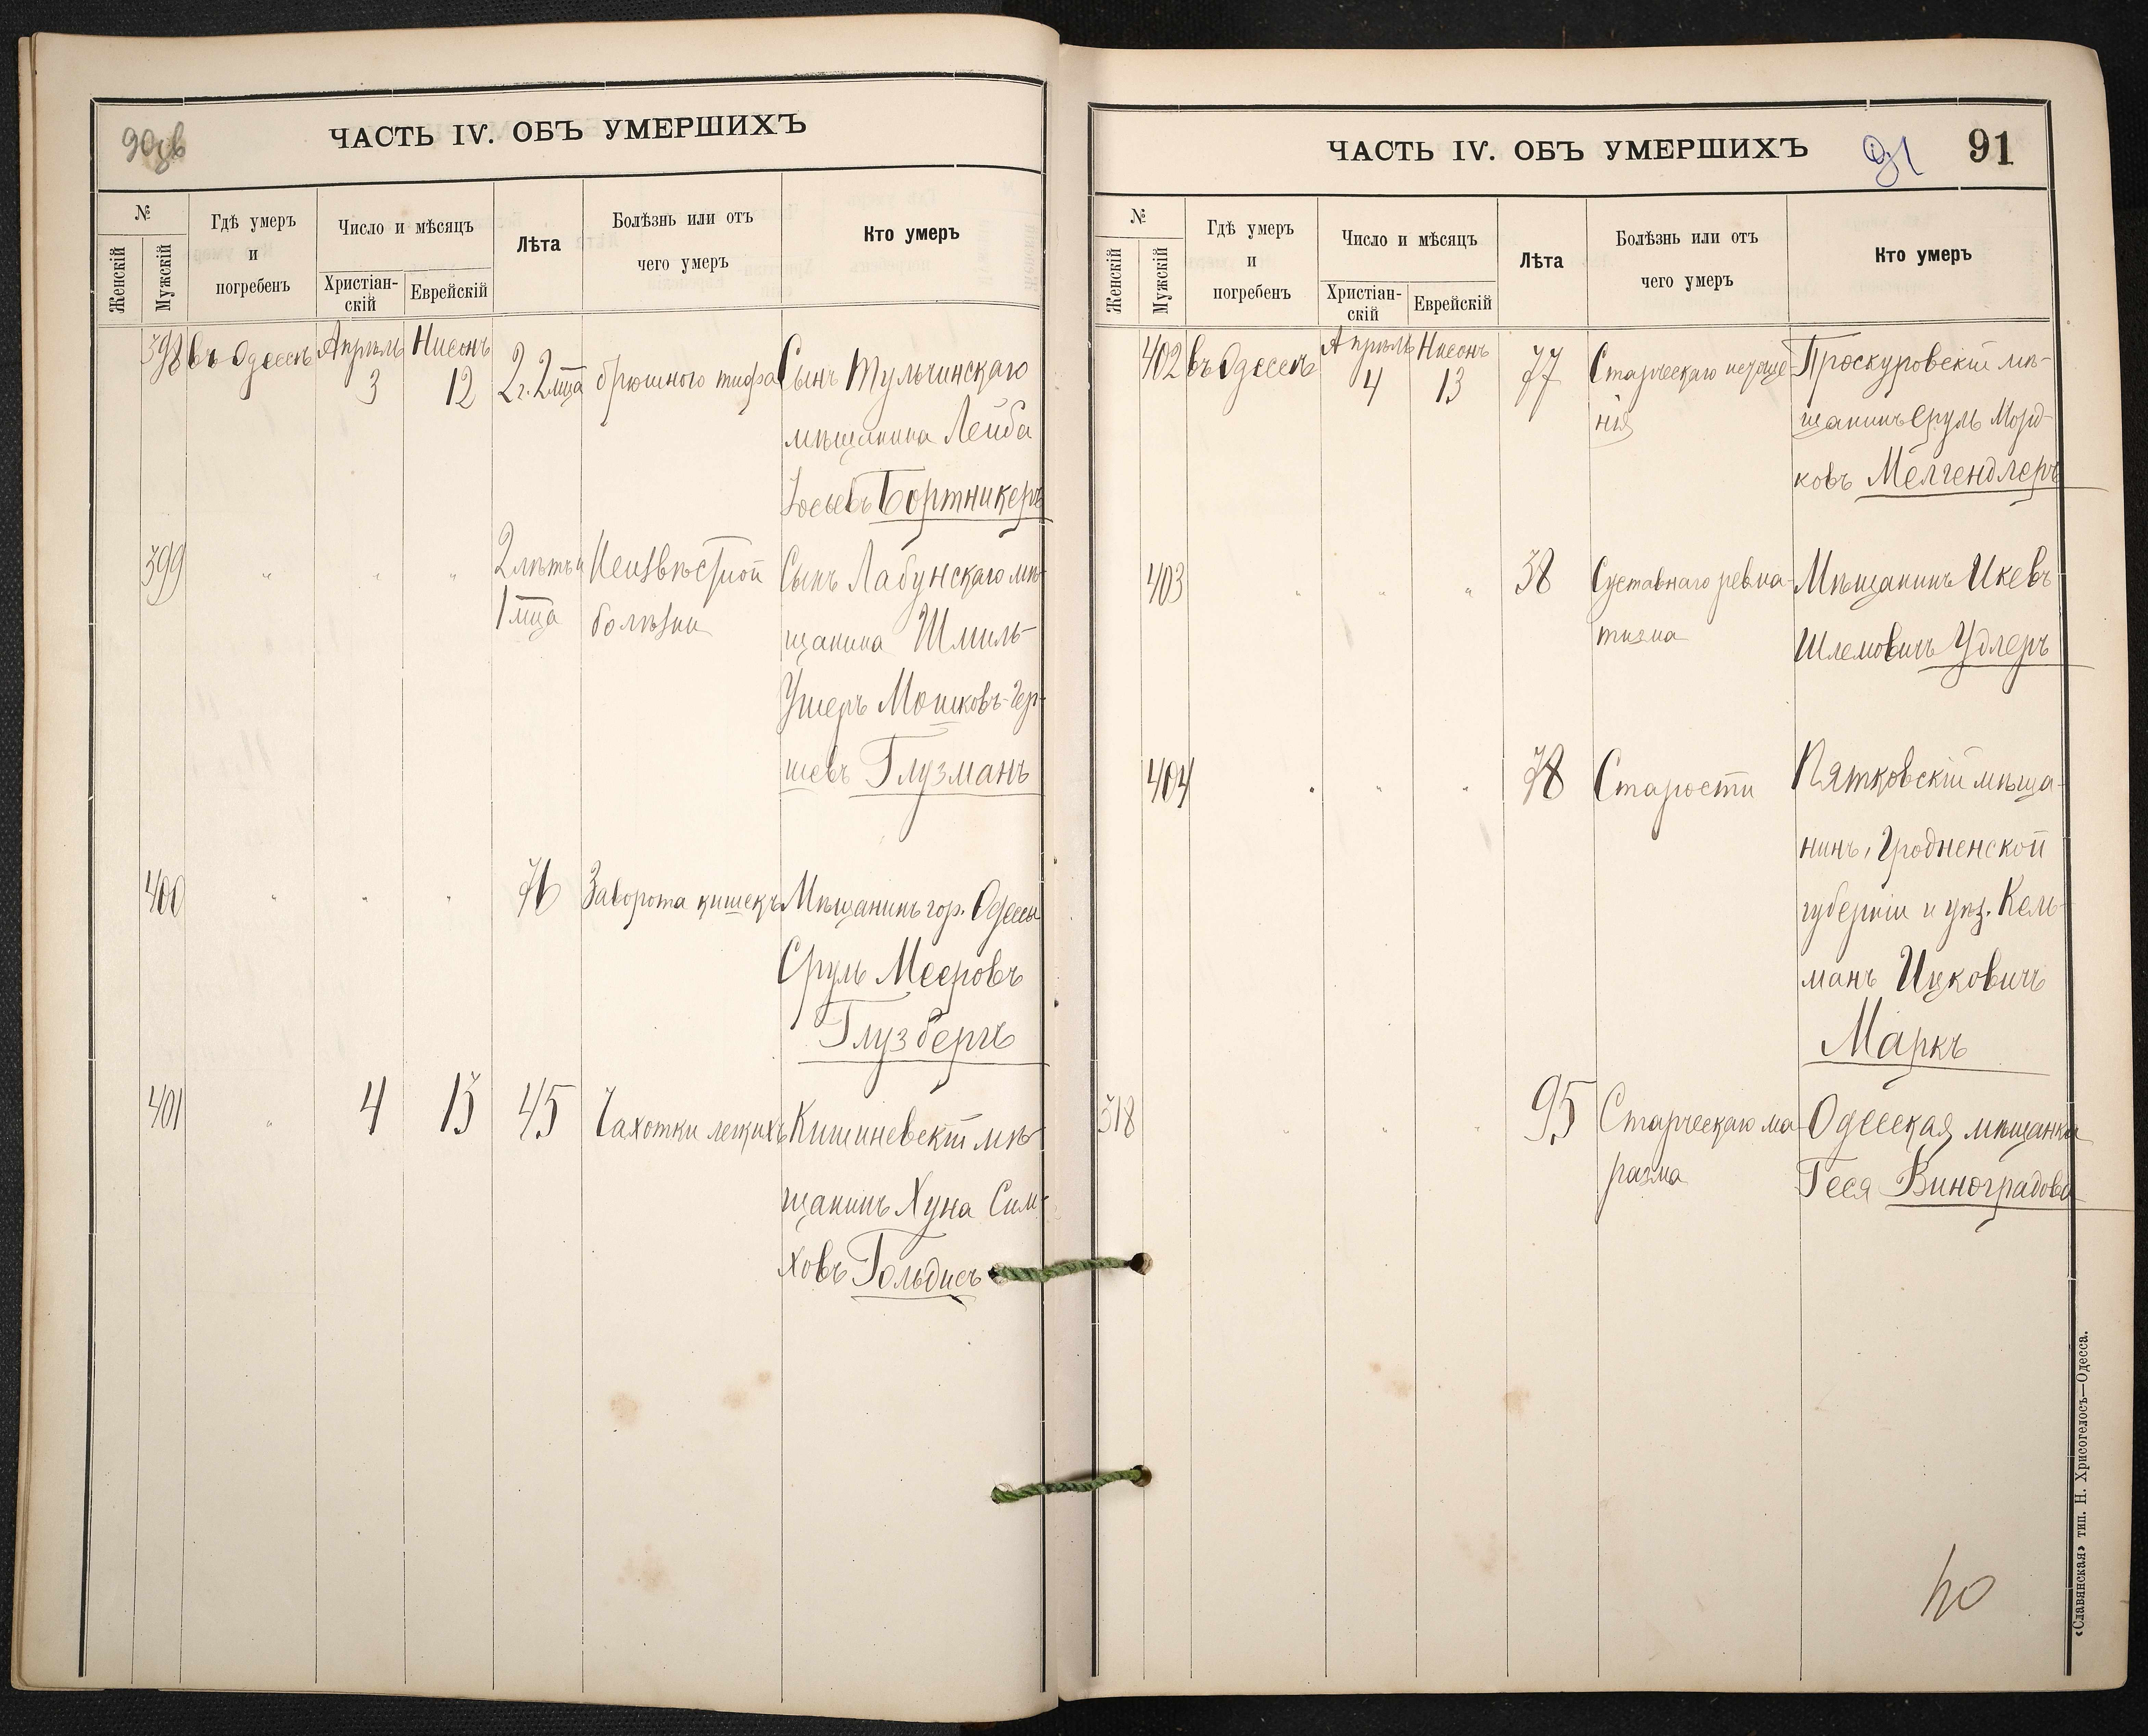 90об
ЧАСТЬ IV. ОБЪ УМЕРШИХЪ
№
Женскій
Мужскій
Гдѣ умеръ
и
погребенъ
Число и мѣсяцъ
Христіан-
скій
Еврейскій
Лѣта
Болѣзнь или отъ
чего умеръ
Кто умеръ
398 въ Одессѣ Апрѣль 3 Нисонъ 12 2 г. 2 мца брюшного тифа Сынъ Тульчинскаго
мѣщанина Лейба
Іосьевъ Бортникеръ
399 " " " 2 лѣтъ и Неизвѣстной Сынъ Лабунскаго мѣ-
1 мца болѣзни щанина Шмиль
Ушеръ Мошковъ-Гер-
шевъ Глузманъ
400 " " " 76 Заворота кишекъ Мѣщанинъ гор. Одессы
Сруль Мееровъ
Глузбергъ
401 " 4 13 45 Чахотки легкихъ Кишиневскій мѣ-
щанинъ Хуна Сим-
ховъ Гольдисъ
ЧАСТЬ IV. ОБЪ УМЕРШИХЪ
91
91
№
Женскій
Мужскій
Гдѣ умеръ
и
погребенъ
Число и мѣсяцъ
Христіан-
скій
Еврейскій
Лѣта
Болѣзнь или отъ
чего умеръ
Кто умеръ
402 въ Одессѣ Апрѣль 4 Нисонъ 13 77 Старческаго истоще- Проскуровскій мѣ-
нія щанинъ Сруль Морд-
ковъ Мелгендлеръ
403 " " " 38 Суставнаго ревма- Мѣщанинъ Икевъ
тизма Шлемовичъ Удлеръ
404 " " " 78 Старости Пятковскій мѣща-
нинъ, Гродненской
губерніи и уѣз. Кель-
манъ Ицковичъ
Маркъ
318 " " " 95 Старческаго ма- Одесская мѣщанка
разма Геся Виноградова
40
«Славянская» тип. Н. Хрисогелосъ—Одесса.